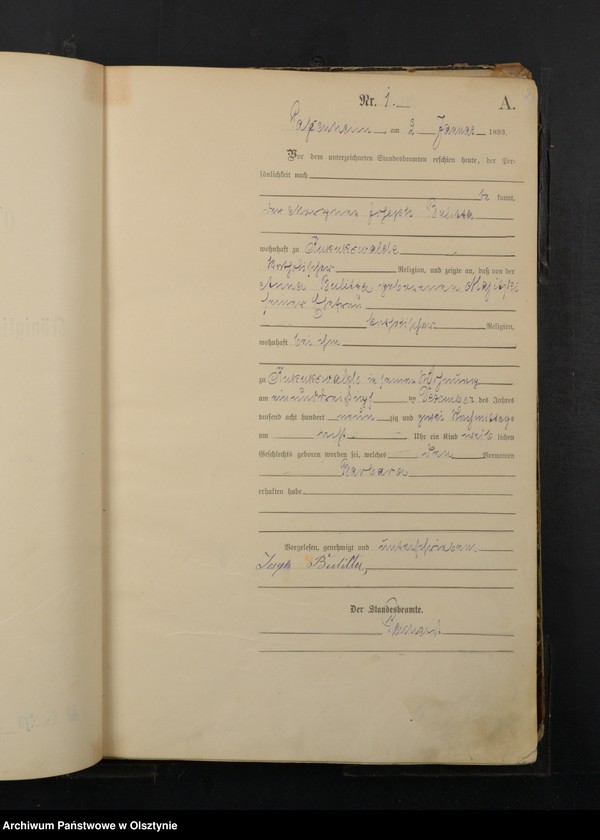 Nr. 1.
A.
am 2 Januar 1893.
Vor dem unterzeichneten Standesbeamten erschien heute, der Per-
sönlichkeit nach
be kannt,
der Joseph
wohnhaft zu
katholischer Religion, und zeigte an, daß von der
Anna geborenen
seiner Ehefrau
katholischer Religion,
wohnhaft bei ihm
zu in seiner Wohnung
am einunddreißigs ten Dezember des Jahres
tausend acht hundert neun zig und zwei Nachmittags
um acht Uhr ein Kind weib lichen
Geschlechts geboren worden sei, welches den Vornamen
Barbara
erhalten habe
Vorgelesen, genehmigt und unterschrieben
Der Standesbeamte.
Archiwum Państwowe w Olsztynie